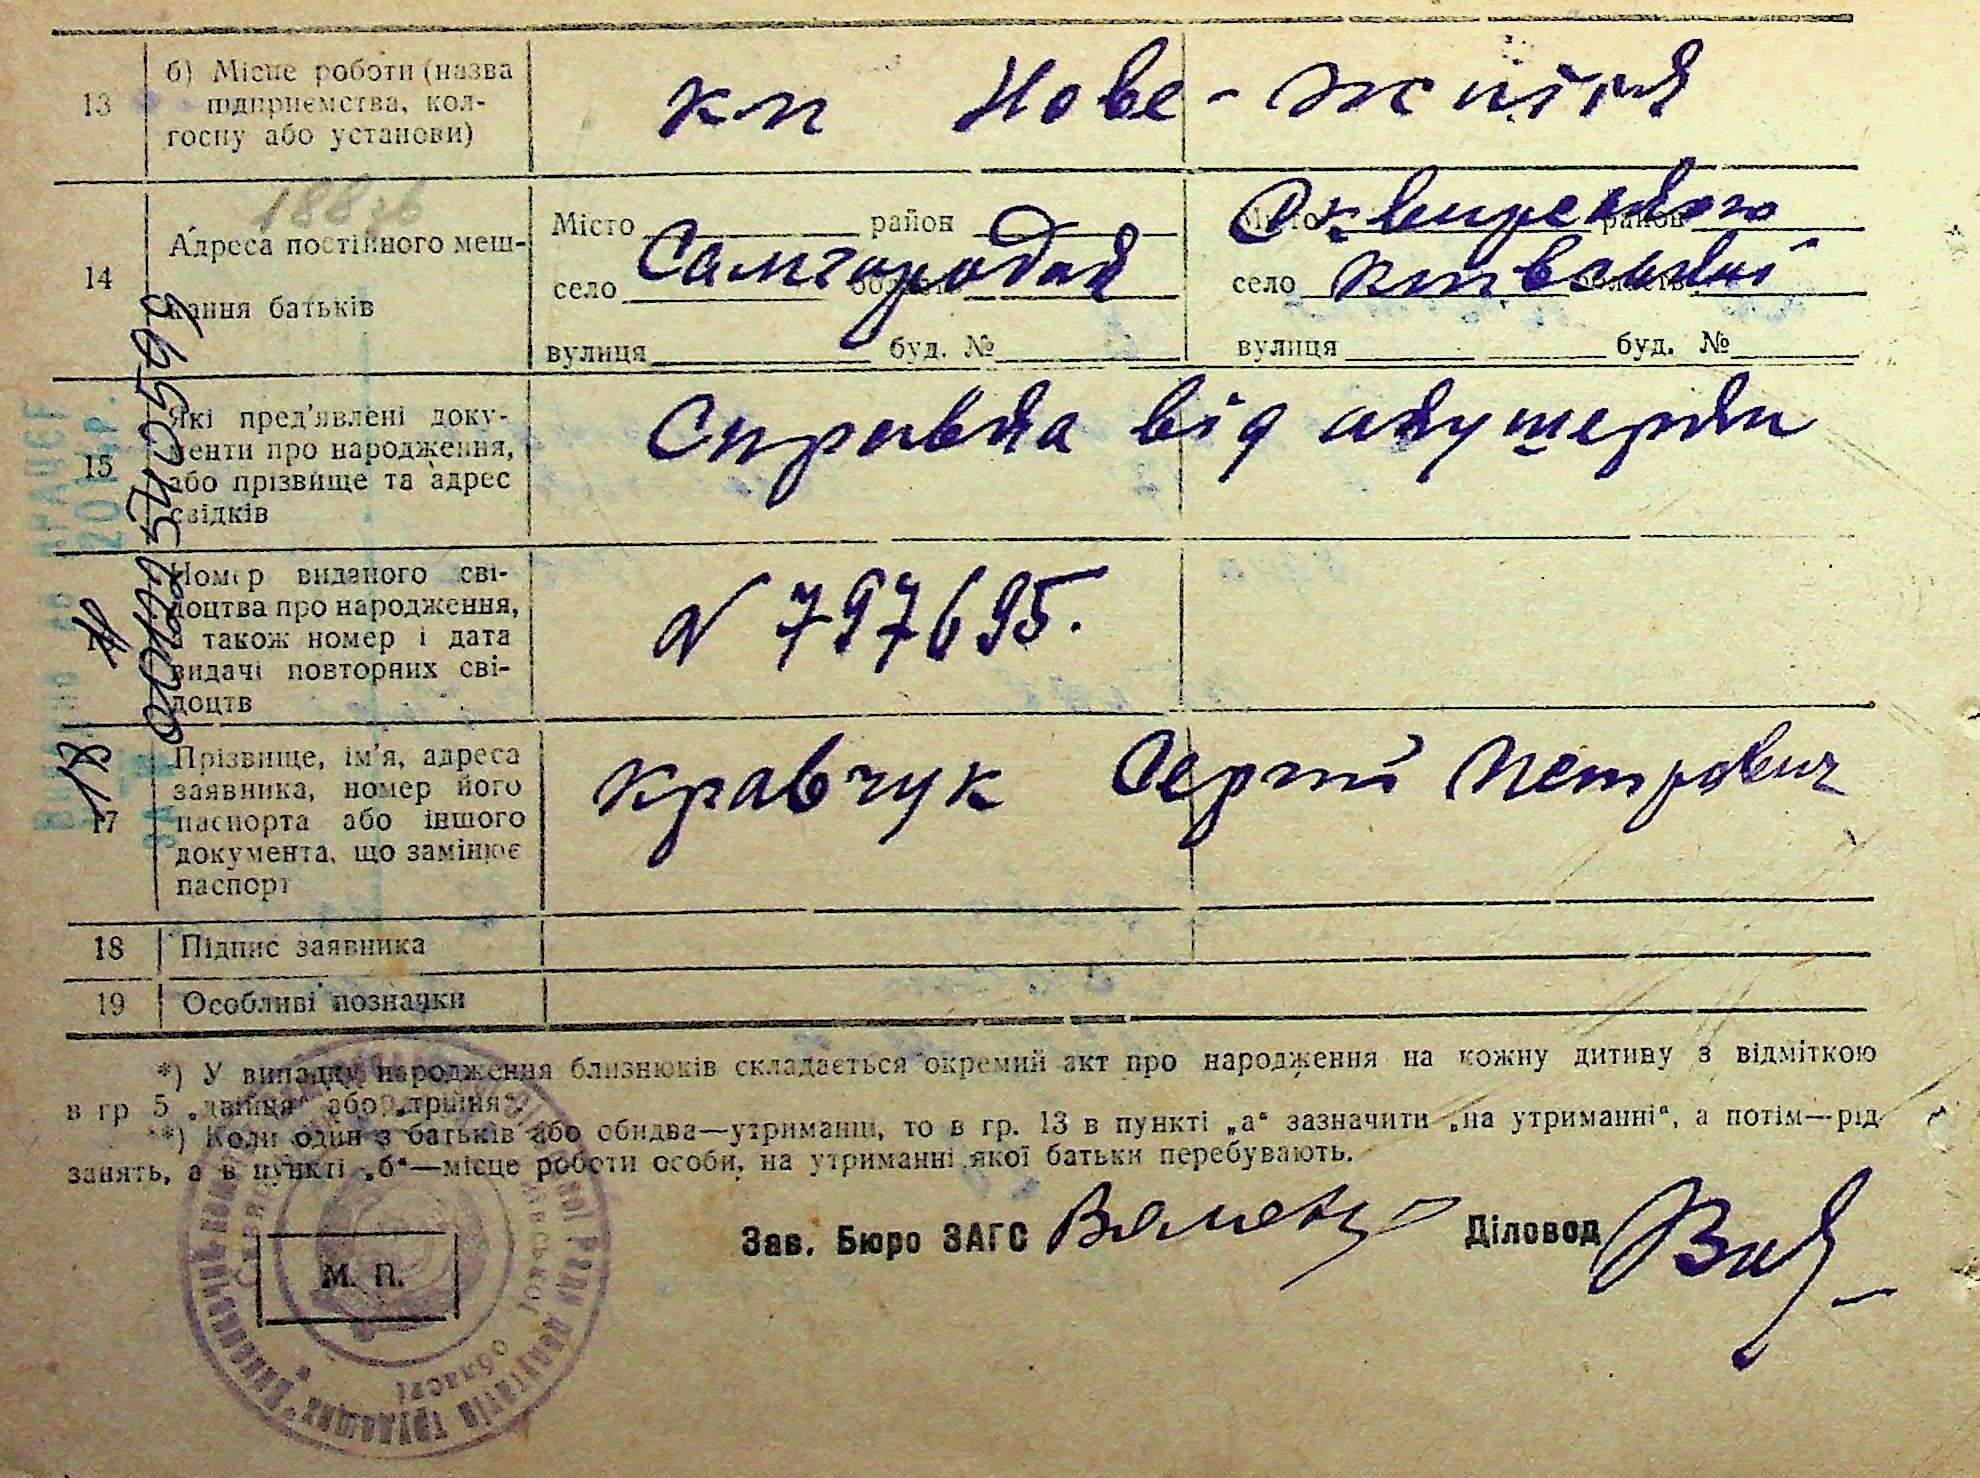 13 б) Місце роботи (назва підприємства, кол-
госпу або установи)
кп Нове - життя
188зв
14 Адреса постійного меш-
кання батьків
Місто район
село Самгородок область
вулиця буд. №
Місто Сквирського район
село Київської область
вулиця буд. №
15 Які пред'явлені доку-
менти про народження,
або прізвище та адрес
свідків
Справка від акушерки
Номер виданого сві-
доцтва про народження,
а також номер і дата
видачі повторних сві-
доцтв
N 797695.
17 Прізвище, ім'я, адреса
заявника, номер його
паспорта або іншого
документа, що замінює
паспорт
Кравчук Сергій Петрович
18 Підпис заявника
19 Особливі позначки
*) У випадку народження близнюків складається окремий акт про народження на кожну дитину з відміткою
в гр 5 „двійця" або „трійня".
**) Коли один з батьків або обидва—утриманці, то в гр. 13 в пункті „а" зазначити „на утриманні", а потім—рід
занять, а в пункті „б"—місце роботи особи, на утриманні якої батьки перебувають.
Зав. Бюро ЗАГС
Діловод
М. П.
депутатів трудящих
області